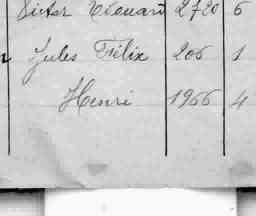 Victor Edouard 2720 6
Jules Félix 206 1
Henri 1966 4